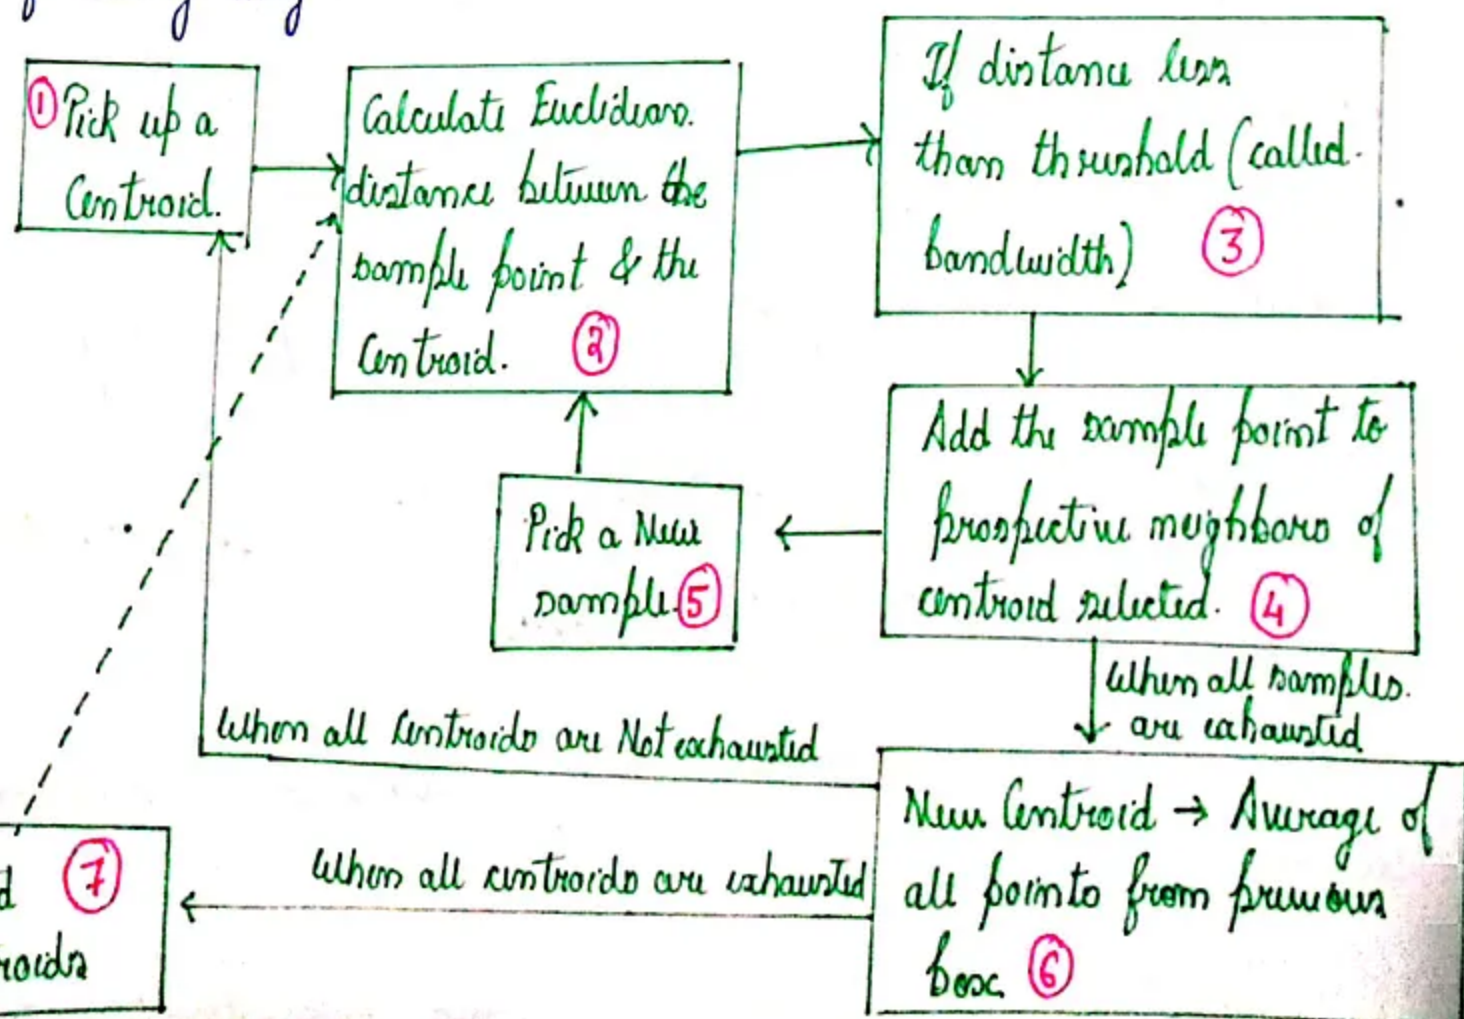 ① Pick up a
Centroid.
Calculate Euclidean
distance between the
sample point & the
Centroid. ②
If distance less
than threshold (called
bandwidth) ③
Add the sample point to
prospective neighbors of
centroid selected. ④
Pick a New
sample. ⑤
When all samples
are exhausted
When all Centroids are Not exhausted
New Centroid → Average of
all points from previous
box ⑥
When all centroids are exhausted
d ⑦
roids